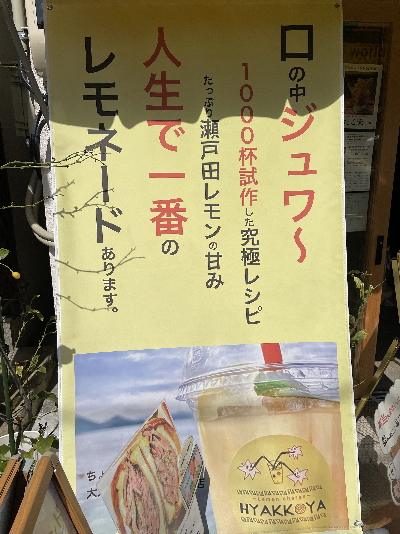 口の中ジュワ〜
1000杯試作した究極レシピ
たっぷり瀬戸田レモンの甘み
人生で一番の
レモネードあります。
Lemon chaser
HYAKKOYA